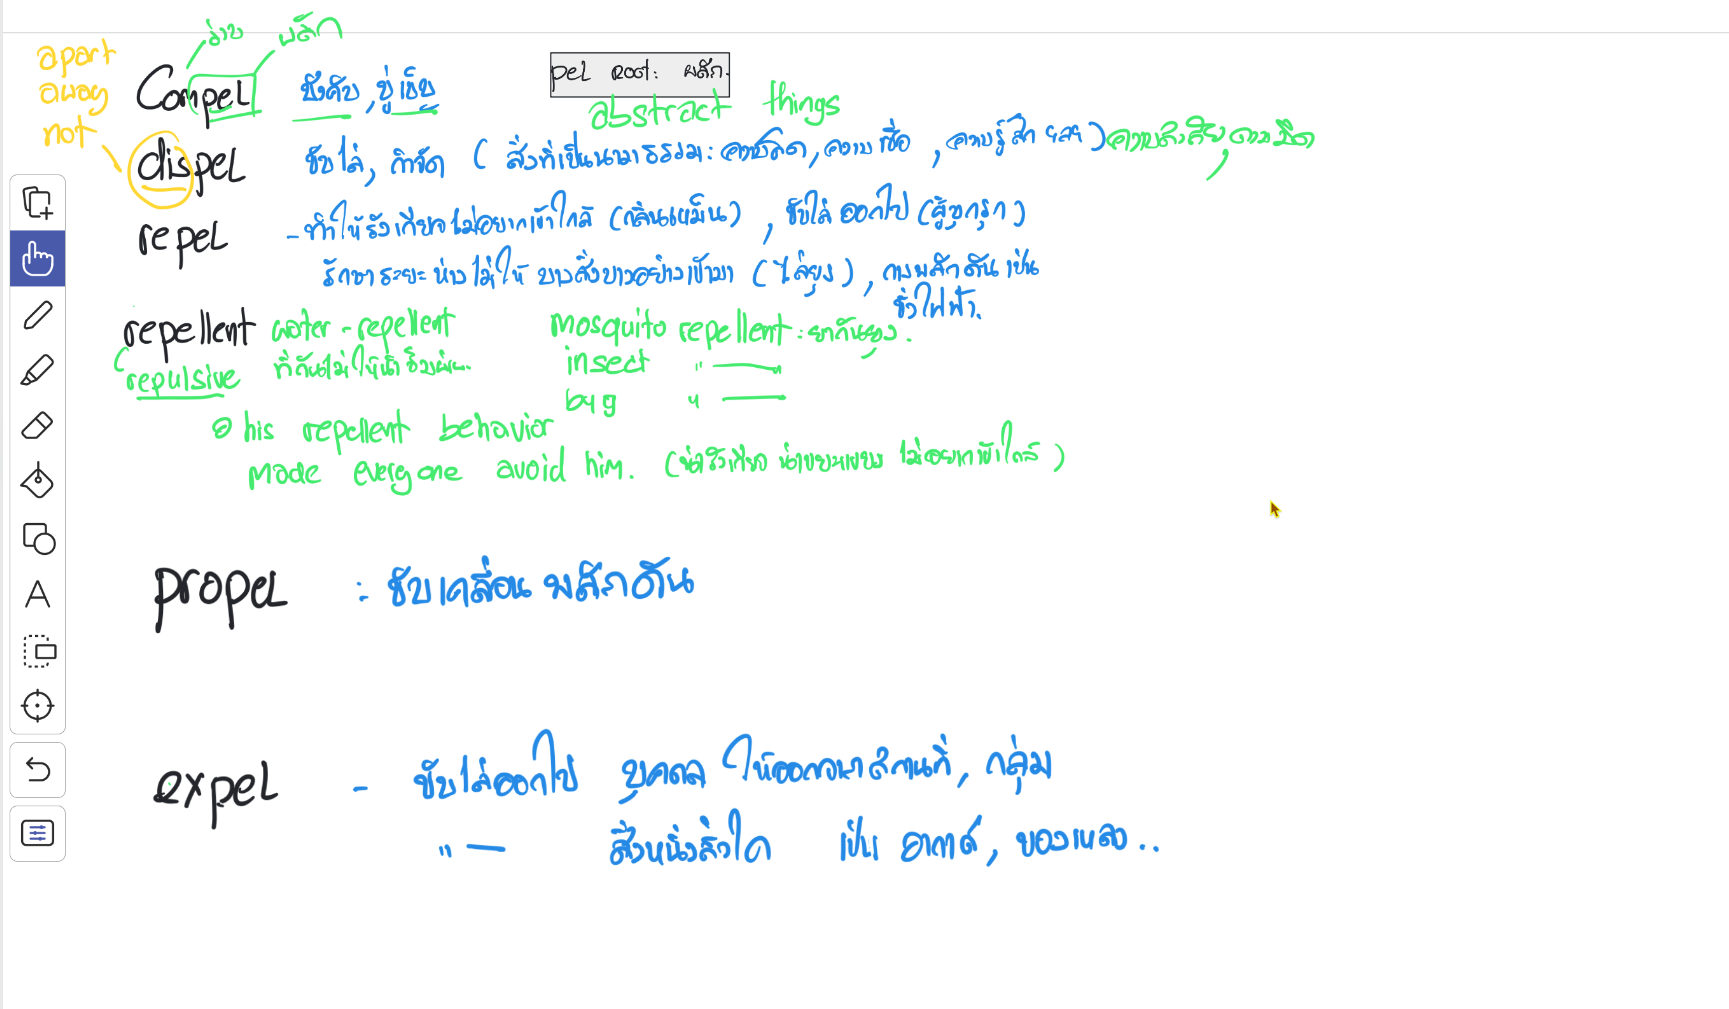 ร่วม ผลัก
apart
away
not
Compel บังคับ, ขู่เข็ญ
pel Root: ผลัก.
abstract things
dispel ขับไล่, กำจัด (สิ่งที่เป็นนามธรรม: ความคิด, ความเชื่อ, ความรู้สึก ฯลฯ) ความสงสัย, ความมืด
repel - ทำให้รังเกียจไม่อยากเข้าใกล้ (กลิ่นเหม็น), ขับไล่ออกไป (ผู้บุกรุก)
รักษาระยะห่างไม่ให้ บางสิ่งบางอย่างเข้ามา (ไล่ยุง), การผลักดันเป็น
ขั้วไฟฟ้า.
repellent water-repellent mosquito repellent: ยากันยุง.
repulsive ที่กันไม่ให้น้ำซึมผ่าน. insect " —
bug " —
his repellent behavior
made everyone avoid him. (น่ารังเกียจ น่าขยะแขยง ไม่อยากเข้าใกล้)
propel : ขับเคลื่อน ผลักดัน
expel - ขับไล่ออกไป บุคคล ให้ออกจากสถานที่, กลุ่ม
" — สิ่งหนึ่งสิ่งใด เช่น อากาศ, ของเหลว..